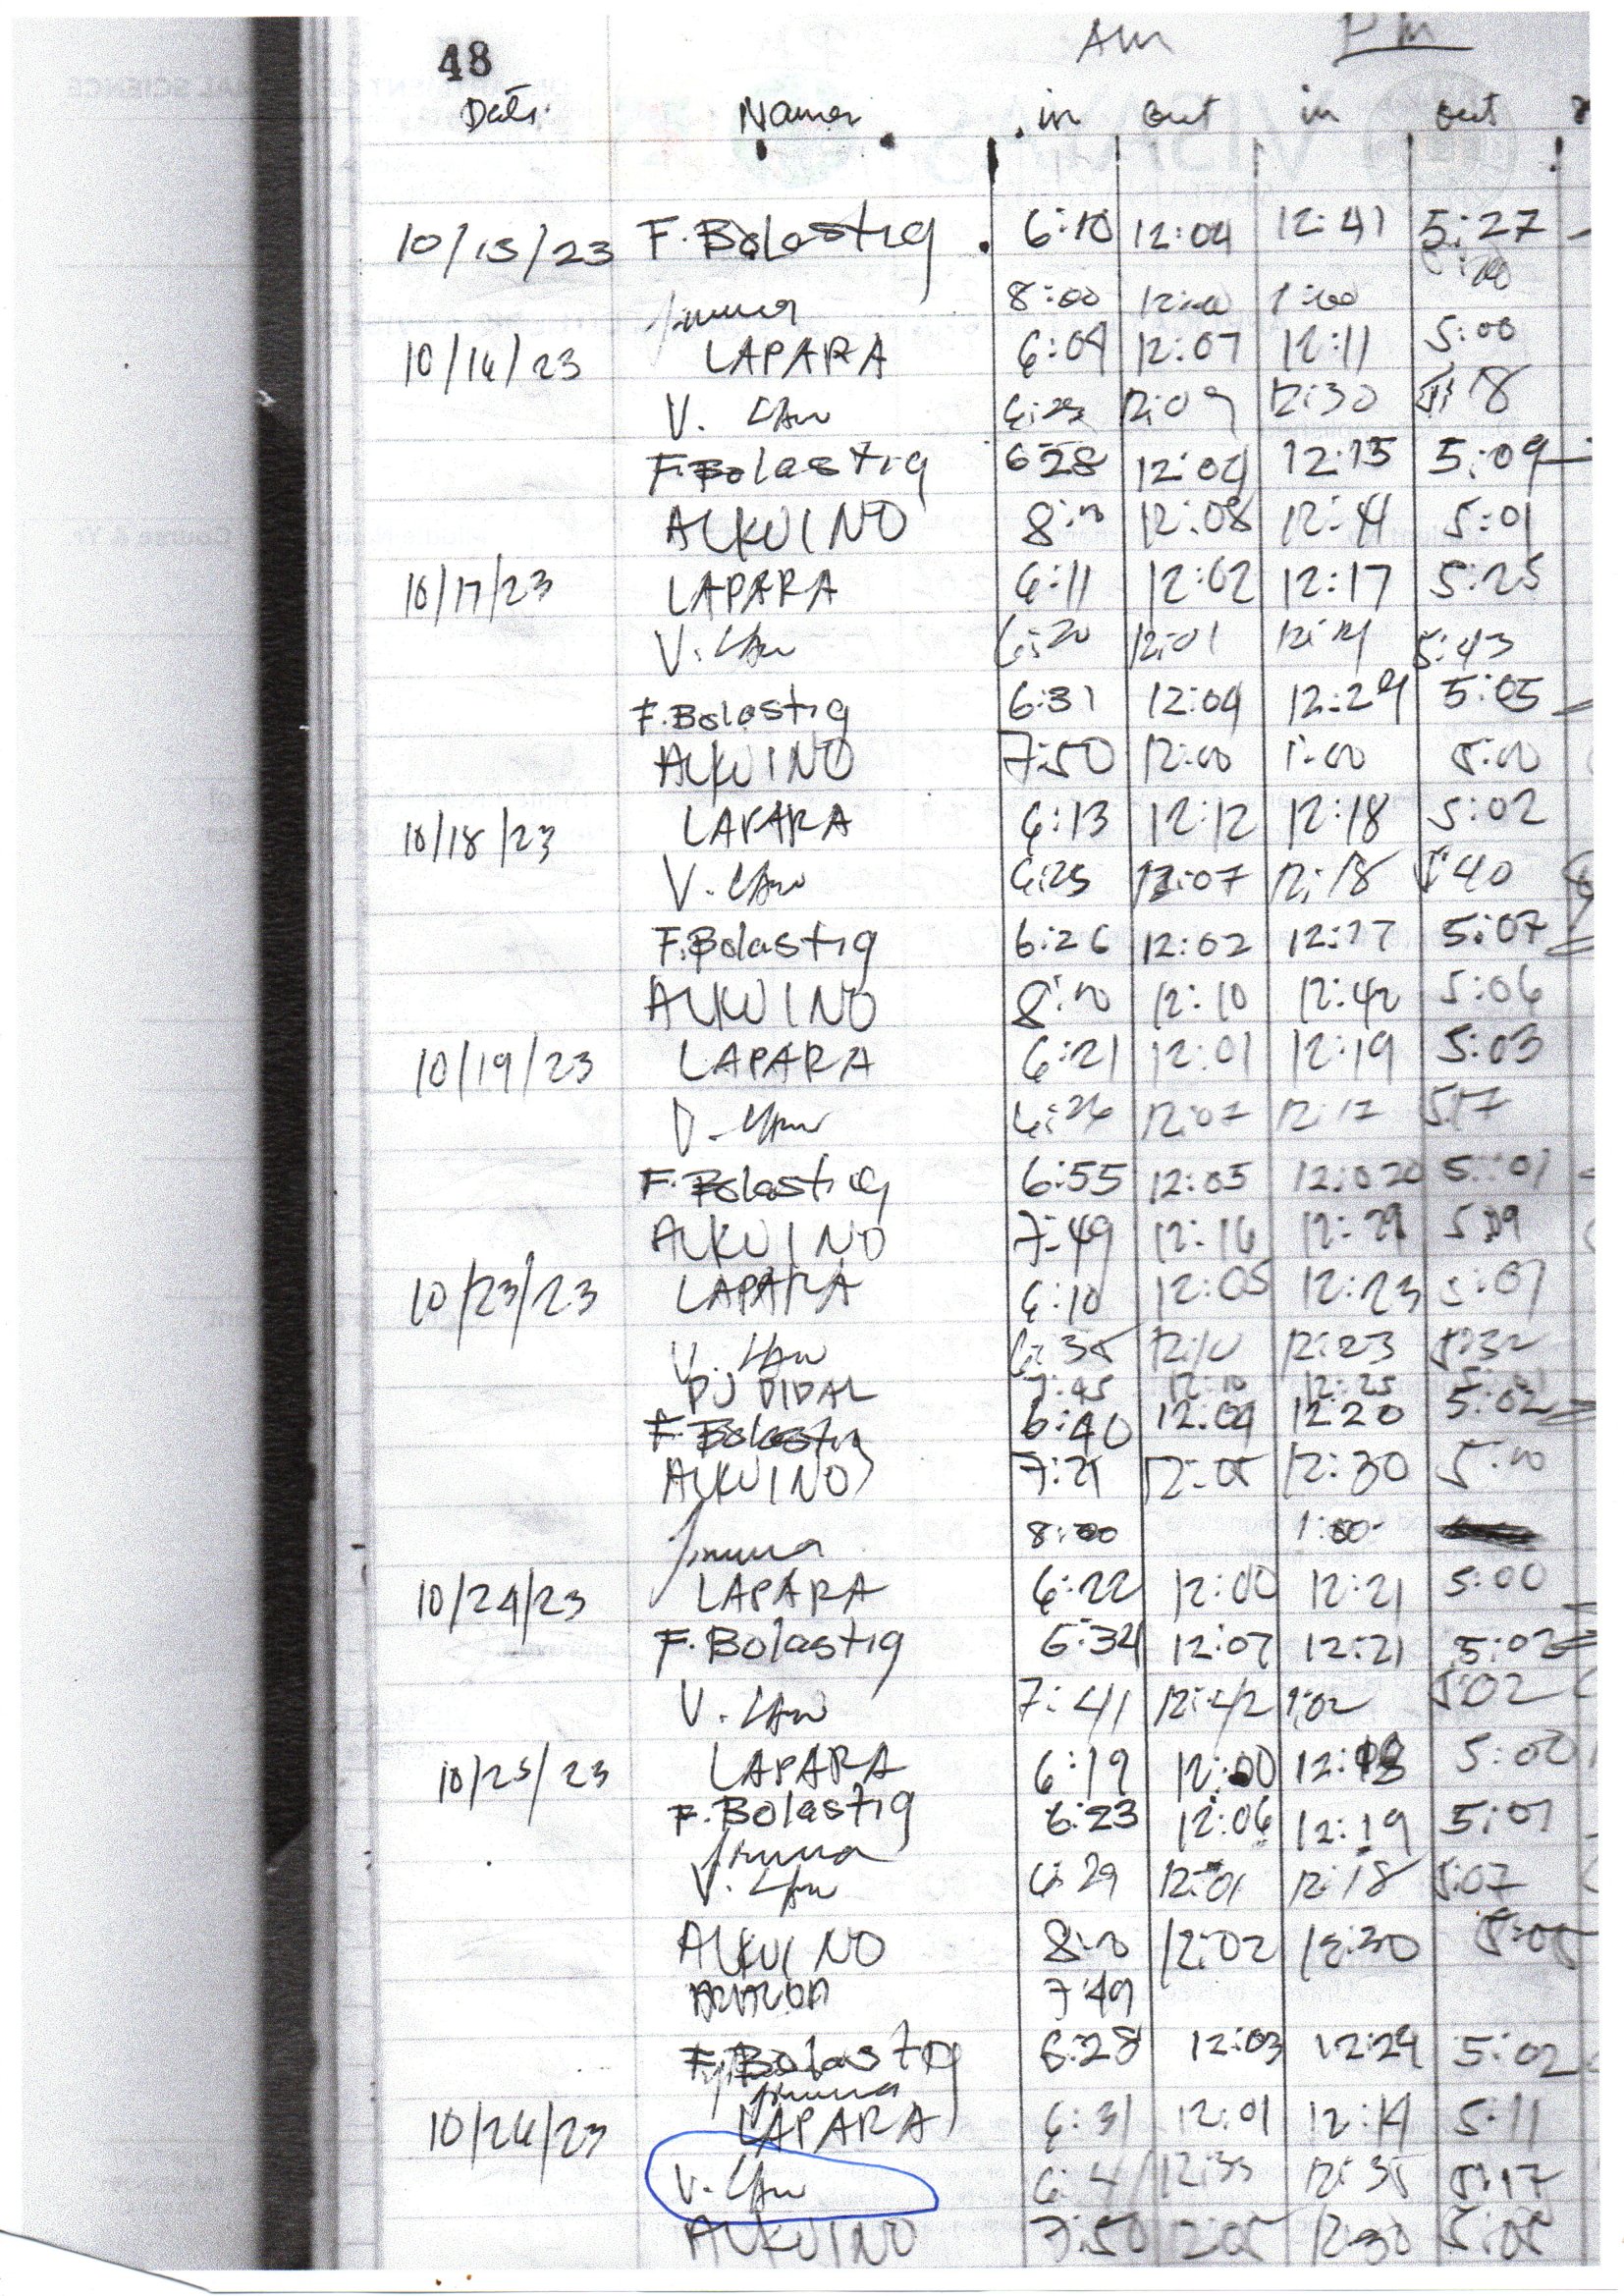 48
Am Pm
Date Names in out in out
10/15/23 F. Bolastig 6:10 12:04 12:41 5:27
8:00 12:00 1:00
10/16/23 LAPARA 6:09 12:07 12:11 5:00
V. 12:09 12:30 18
F. Bolastig 628 12:04 12:15 5:09
ALKUINO 8:00 12:08 12:41 5:01
10/17/23 LAPARA 6:11 12:02 12:17 5:25
V. 6:20 12:01 12:14 5:43
F. Bolastig 6:31 12:04 12:29 5:05
ALKUINO 7:50 12:00 1:00 5:00
10/18/23 LAPARA 6:13 12:12 12:18 5:02
V. 6:25 12:07 12:18 5:40
F. Bolastig 6:26 12:02 12:17 5:07
ALKUINO 8:00 12:10 12:42 5:06
10/19/23 LAPARA 6:21 12:01 12:19 5:03
V. 6:26 12:07 12:17 5:17
F. Bolastig 6:55 12:05 12:020 5:01
ALKUINO 7:49 12:16 12:29 5:09
10/23/23 LAPARA 6:10 12:05 12:23 5:07
V. 6:35 12:10 12:23 5:32
PJ DIDAL 7:45 12:10 12:25
F. Bolastig 6:40 12:04 12:20 5:02
ALKUINO 7:21 12:05 12:30 5:00
8:00 1:00
10/24/23 LAPARA 6:22 12:00 12:21 5:00
F. Bolastig 6:34 12:07 12:21 5:02
V. 7:41 12:42 1:02 5:02
10/25/23 LAPARA 6:19 12:00 12:18 5:00
F. Bolastig 6:23 12:06 12:19 5:07
V. 6:29 12:01 12:18 5:07
ALKUINO 8:00 12:02 12:30 5:05
7:49
F. Bolastig 6:28 12:03 12:29 5:02
10/26/23 LAPARA 6:31 12:01 12:14 5:11
V. 6:41 12:33 12:35 5:17
ALKUINO 7:50 12:05 12:30 5:05